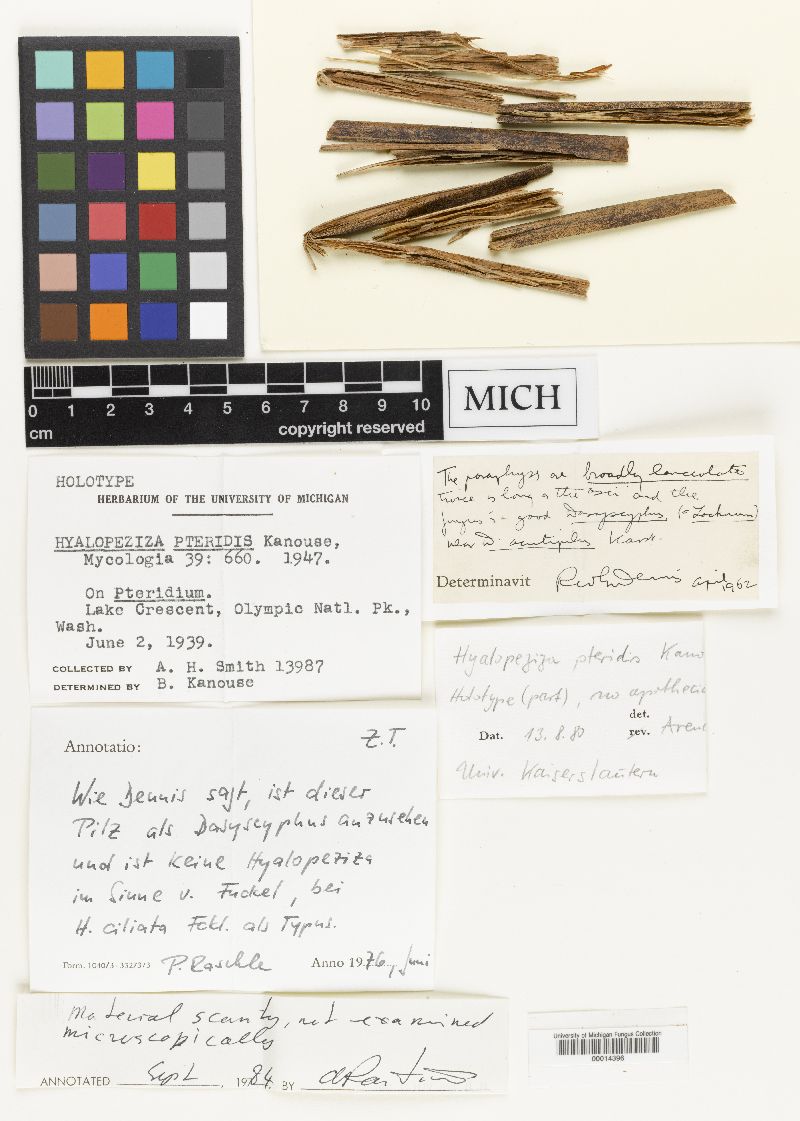 0 1 2 3 4 5 6 7 8 9 10
cm
copyright reserved
MICH
HOLOTYPE
HERBARIUM OF THE UNIVERSITY OF MICHIGAN
HYALOPEZIZA PTERIDIS Kanouse,
Mycologia 39: 660. 1947.
On Pteridium.
Lake Crescent, Olympic Natl. Pk.,
Wash.
June 2, 1939.
COLLECTED BY A. H. Smith 13987
DETERMINED BY B. Kanouse
The paraphyses are broadly lanceolate
twice as long as the asci and the
fungus is a good Dasyscyphus, (= Lachnum)
near D. acutipilus Karst.
Determinavit RWG Dennis april 1962
Hyalopeziza pteridis Kano
Holotype (part), no apothecia
det.
Dat. 13.8.80 rev.
Univ. Kaiserslautern
Z.T.
Annotatio:
Wie Dennis sagt, ist dieser
Pilz als Dasyscyphus anzusehen
und ist keine Hyalopeziza
im Sinne v. Fuckel, bei
H. ciliata Fckl. als Typus.
P. Raschle Anno 1976, Juni
Material scanty, not examined
microscopically
ANNOTATED Sept, 1984 BY
University of Michigan Fungus Collection
00014396